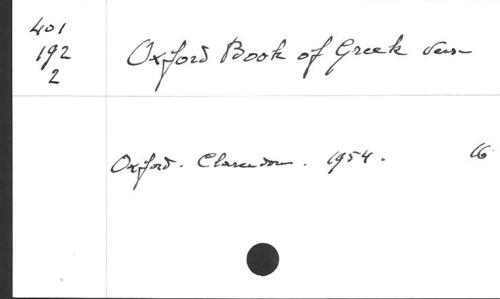 401
192
2
Oxford Book of Greek Vers
Oxford. Clarendon. 1954. 16